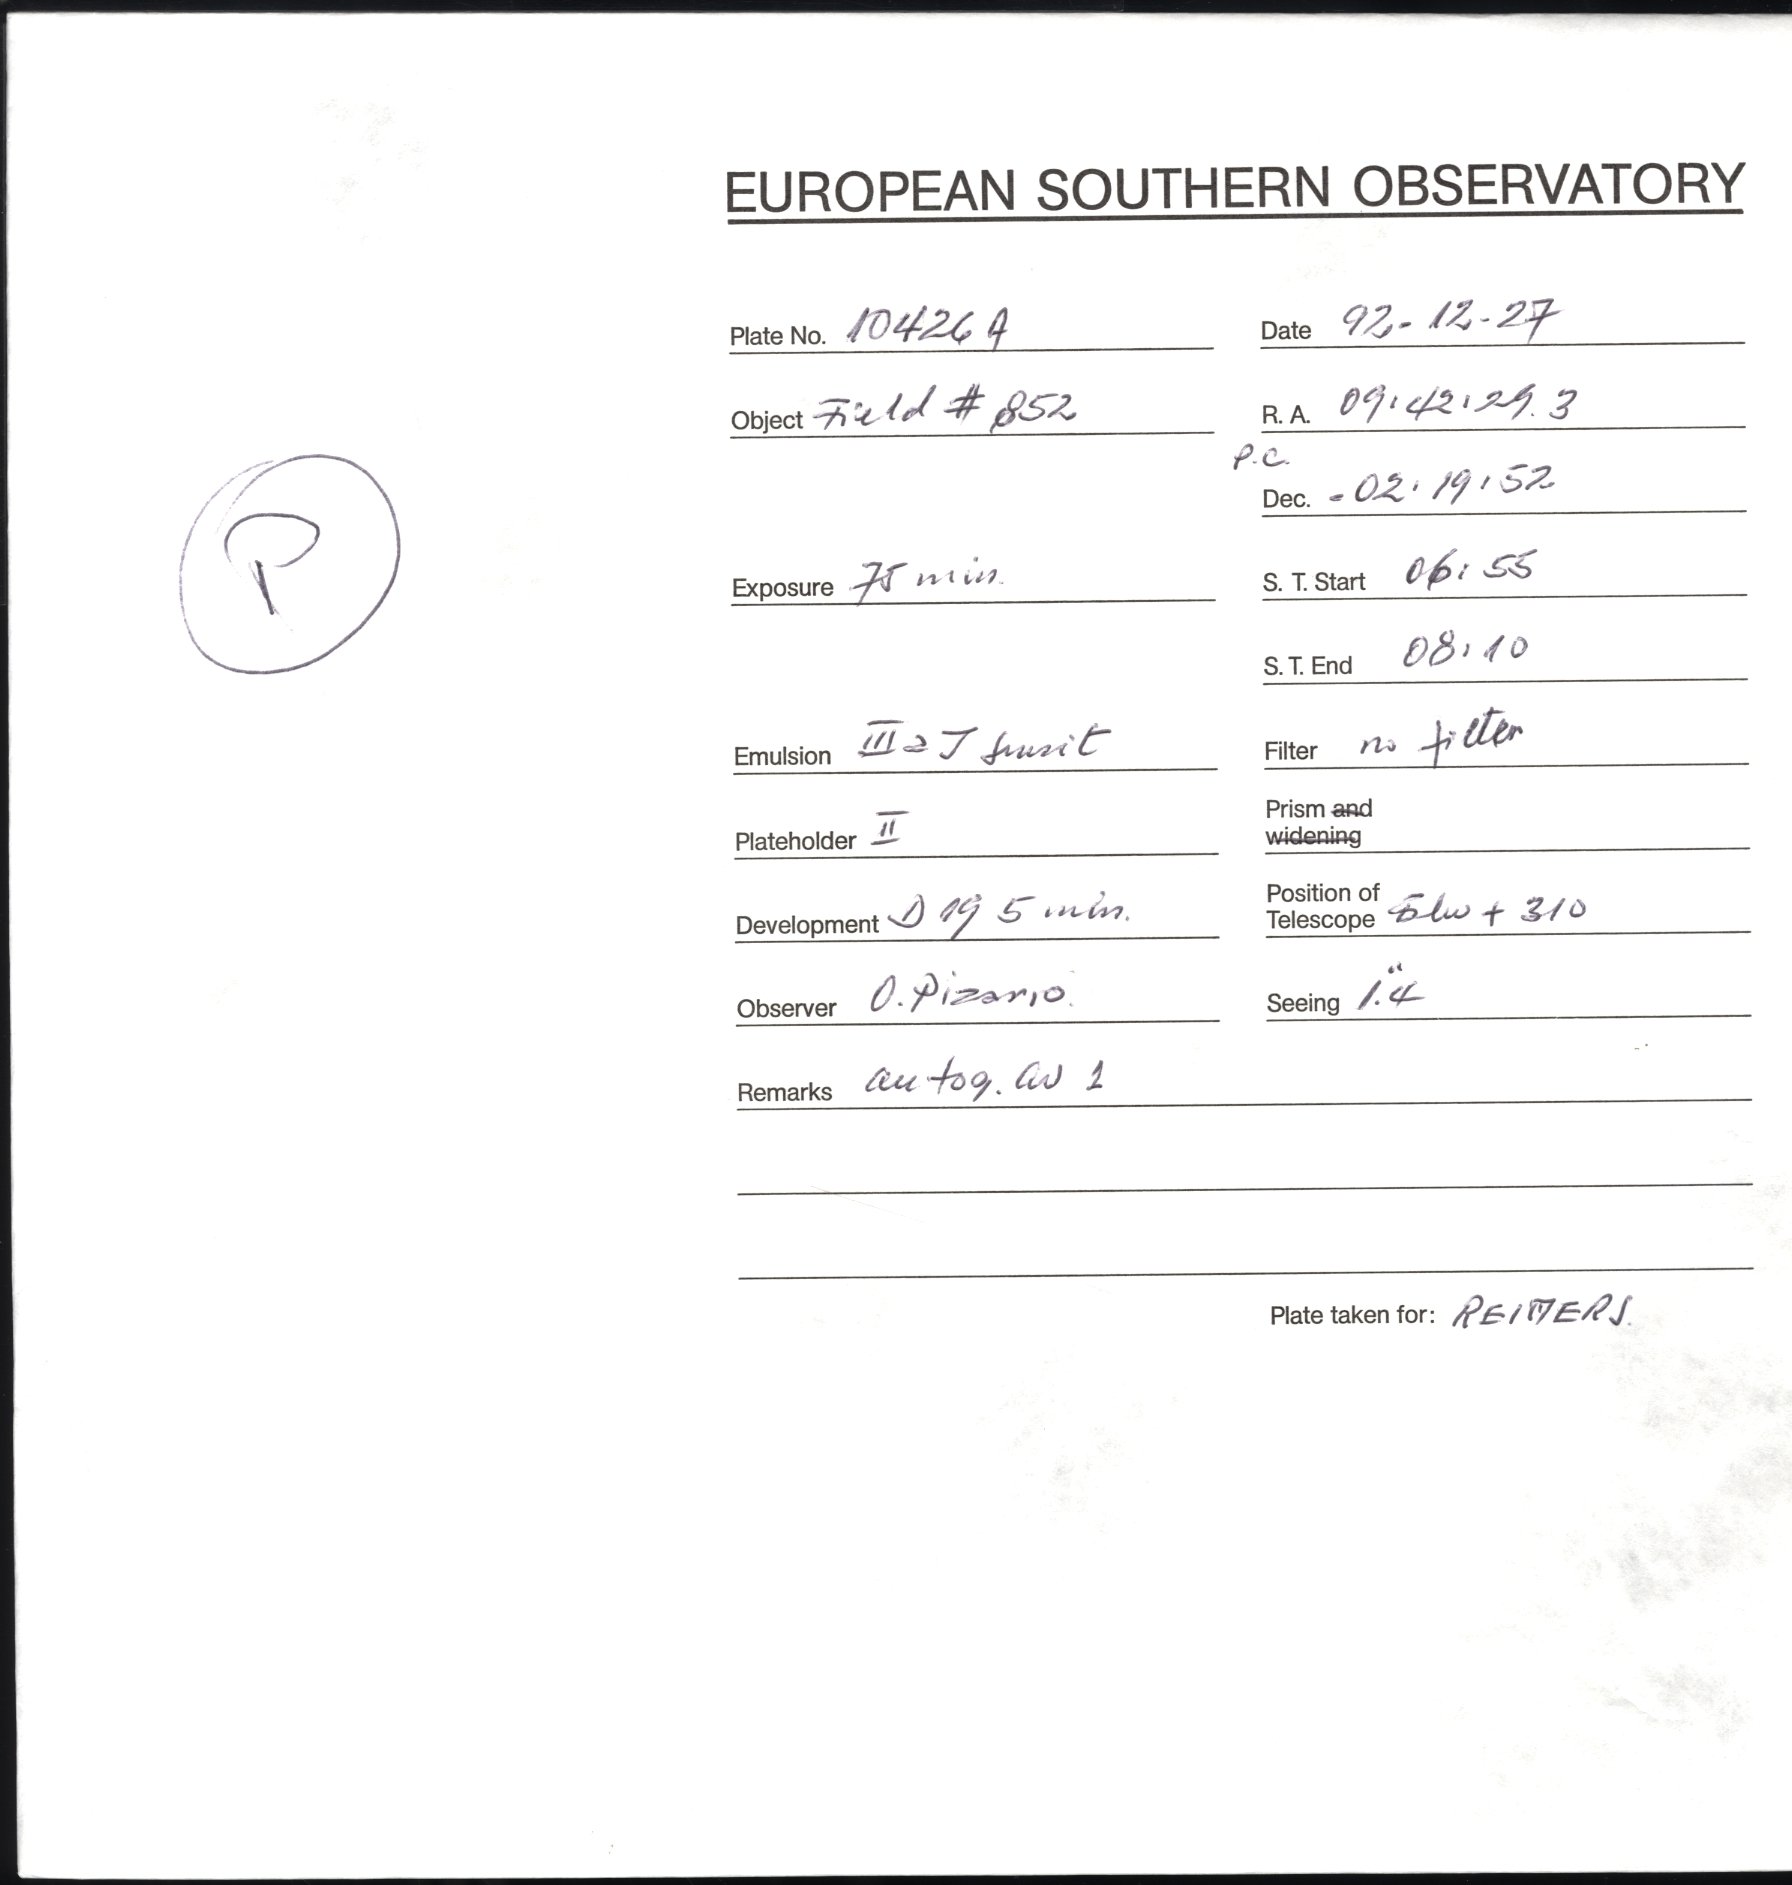 EUROPEAN SOUTHERN OBSERVATORY
Plate No. 10426 A Date 92-12-27
Object Field # 852 R. A. 09:42:29.3
P.C.
Dec. -02:19:52
P
Exposure 75 min. S. T. Start 06:55
S. T. End 08:10
Emulsion III a J Filter no filter
Plateholder II Prism and
widening
Development D 19 5 min. Position of
Telescope + 310
Observer O. Pizarro. Seeing 1."4
Remarks autog. 1
Plate taken for: REIMERS.